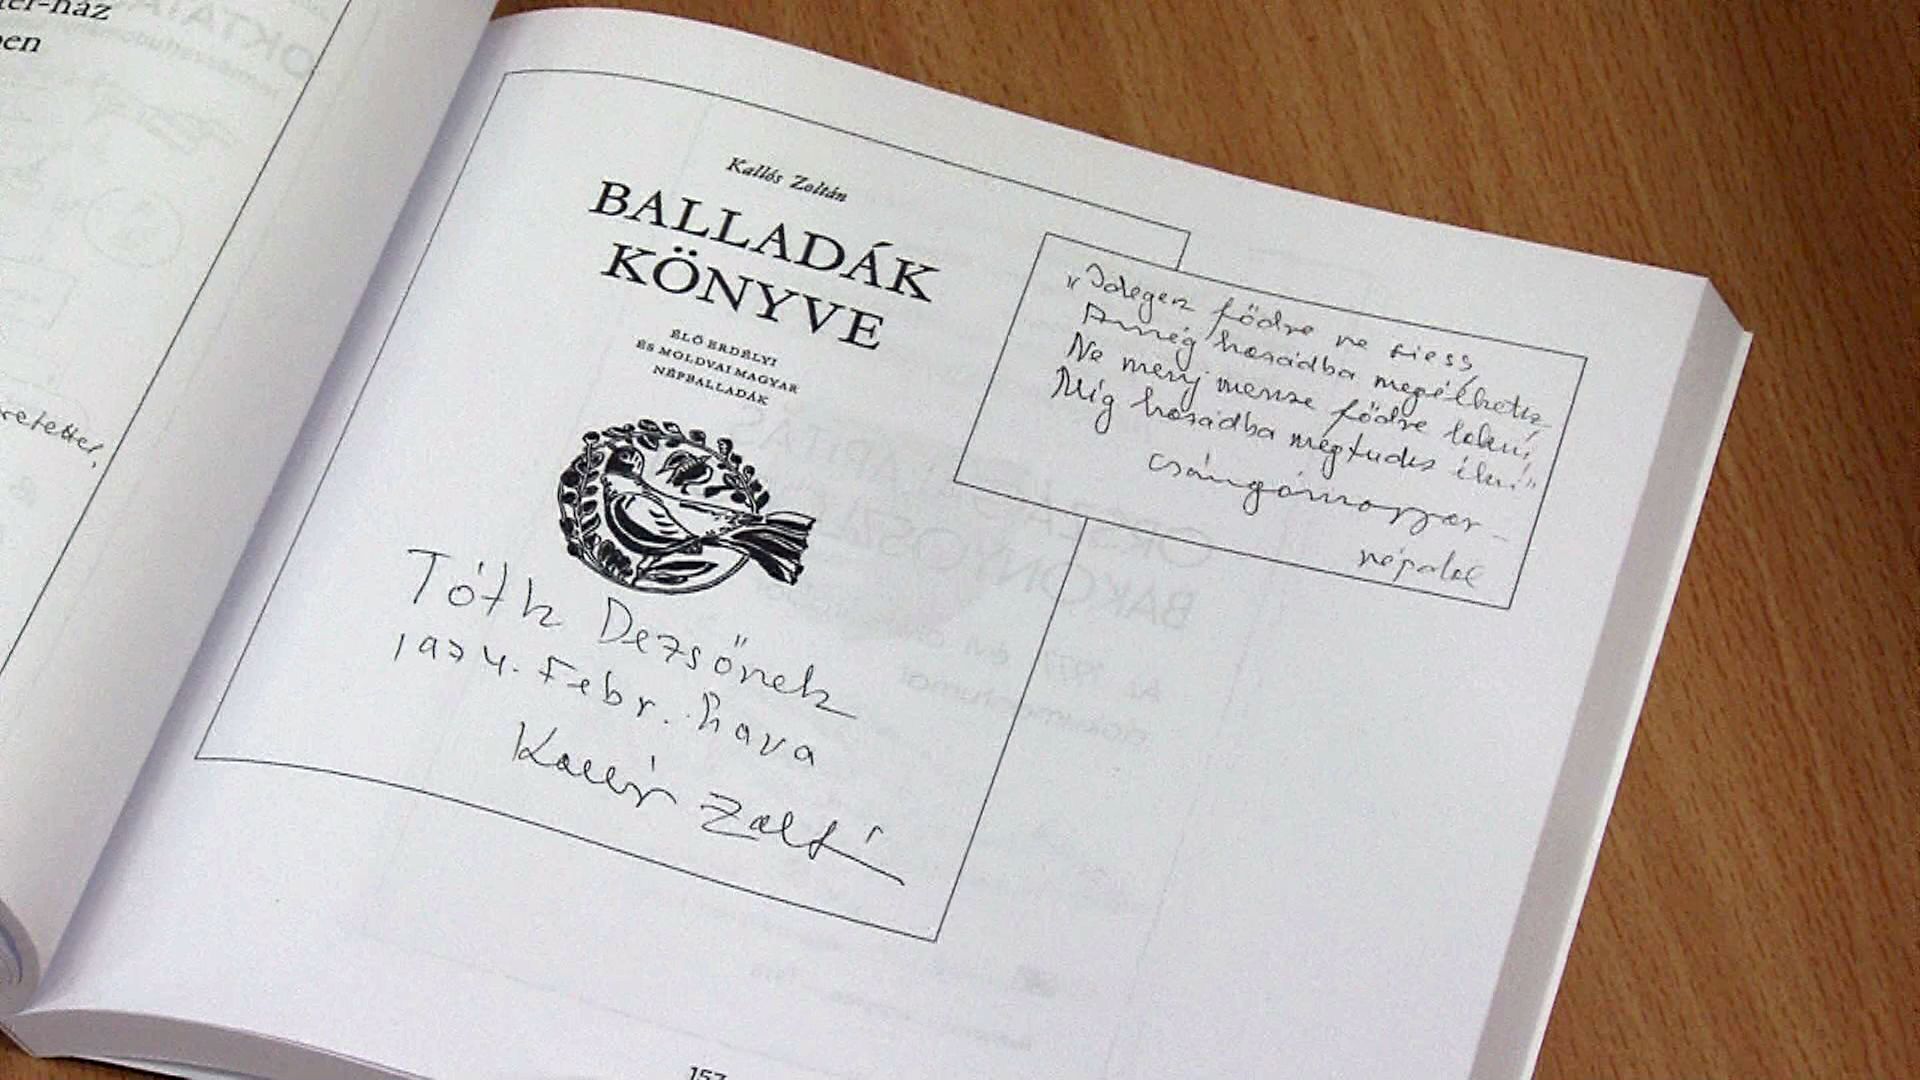 ben
Kallós Zoltán
BALLADÁK
KÖNYVE
ÉLŐ ERDÉLYI
ÉS MOLDVAI MAGYAR
NÉPBALLADÁK
Tóth Dezsőnek
1974. Febr. hava
Kallós Zoltán
„Idegen födre ne siess,
Amég hazádba megélhetsz,
Ne menj messze födre lakni,
Míg hazádba megtudsz élni"
csángómagyar-
népdal
157